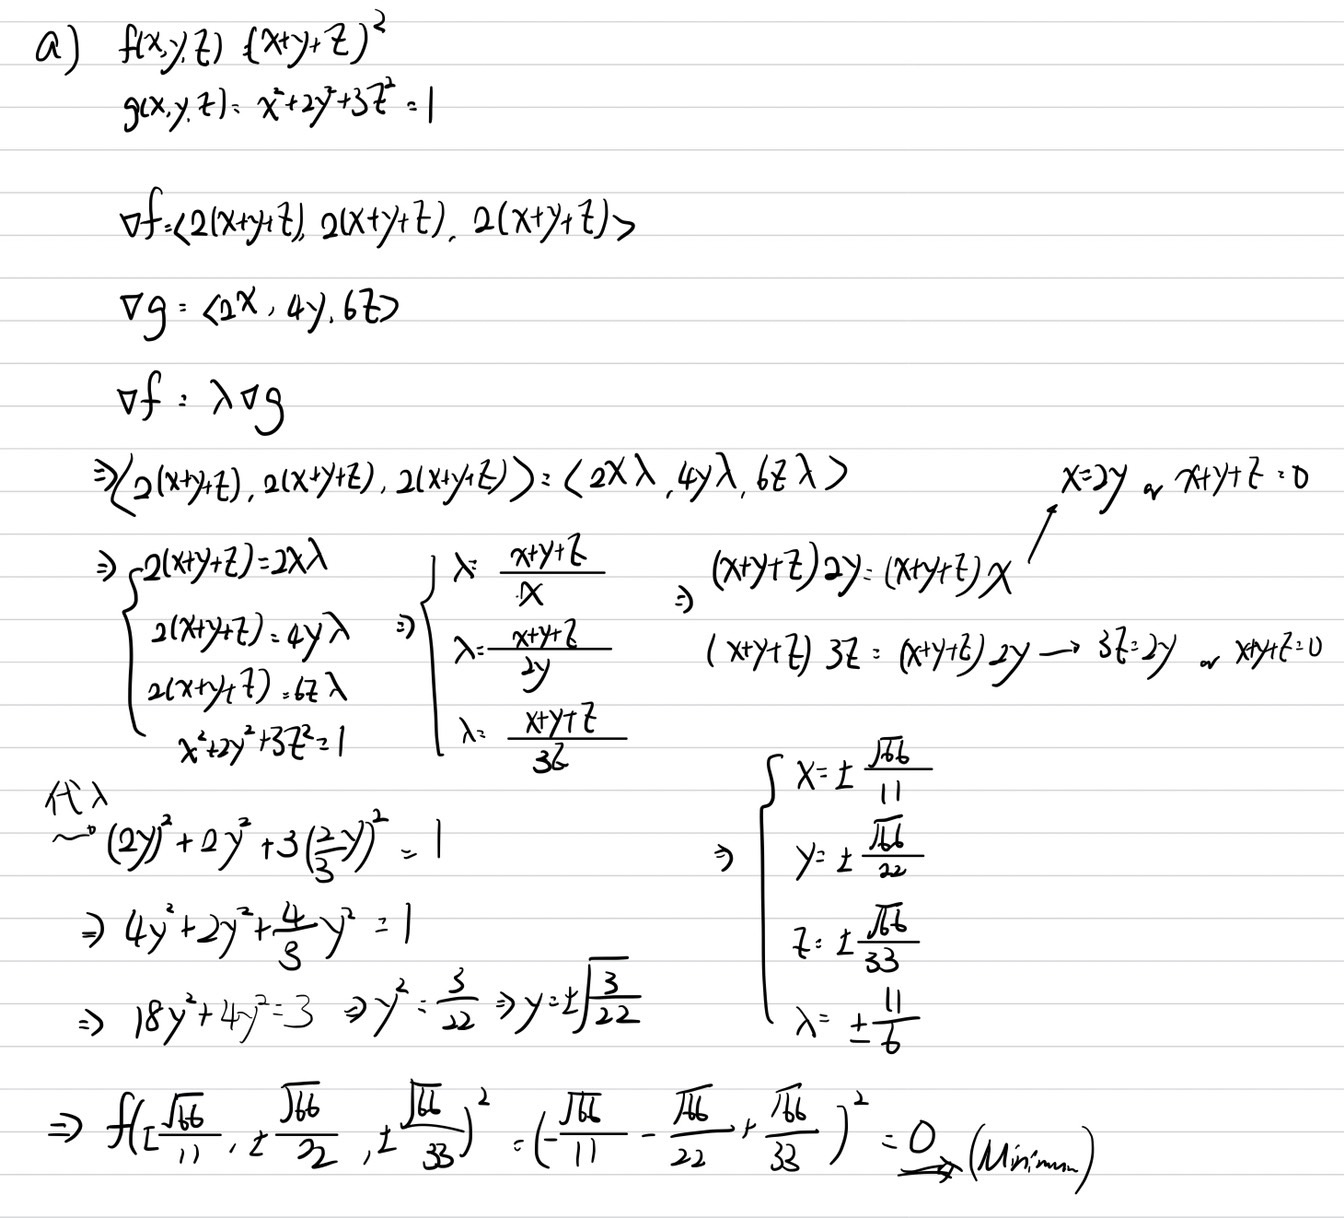 a) f(x,y,z) = (x+y+z)²
g(x,y,z) = x²+2y²+3z² = 1
∇f = <2(x+y+z), 2(x+y+z), 2(x+y+z)>
∇g = <2x, 4y, 6z>
∇f = λ∇g
⇒ <2(x+y+z), 2(x+y+z), 2(x+y+z)> = <2xλ, 4yλ, 6zλ>
⇒ { 2(x+y+z) = 2xλ
2(x+y+z) = 4yλ
2(x+y+z) = 6zλ
x²+2y²+3z² = 1
⇒ { λ = (x+y+z)/x
λ = (x+y+z)/2y
λ = (x+y+z)/3z
⇒ (x+y+z)2y = (x+y+z)x → x=2y or x+y+z=0
(x+y+z)3z = (x+y+z)2y → 3z=2y or x+y+z=0
代λ
→ (2y)²+2y²+3(2/3 y)² = 1
⇒ 4y²+2y²+4/3 y² = 1
⇒ 18y²+4y² = 3 ⇒ y² = 3/22 ⇒ y = ±√(3/22)
⇒ { x = ± √66/11
y = ± √66/22
z = ± √66/33
λ = ± 11/6
⇒ f(± √66/11, ± √66/22, ± √66/33)² = (-√66/11 - √66/22 + √66/33)² = 0 (Minimum)